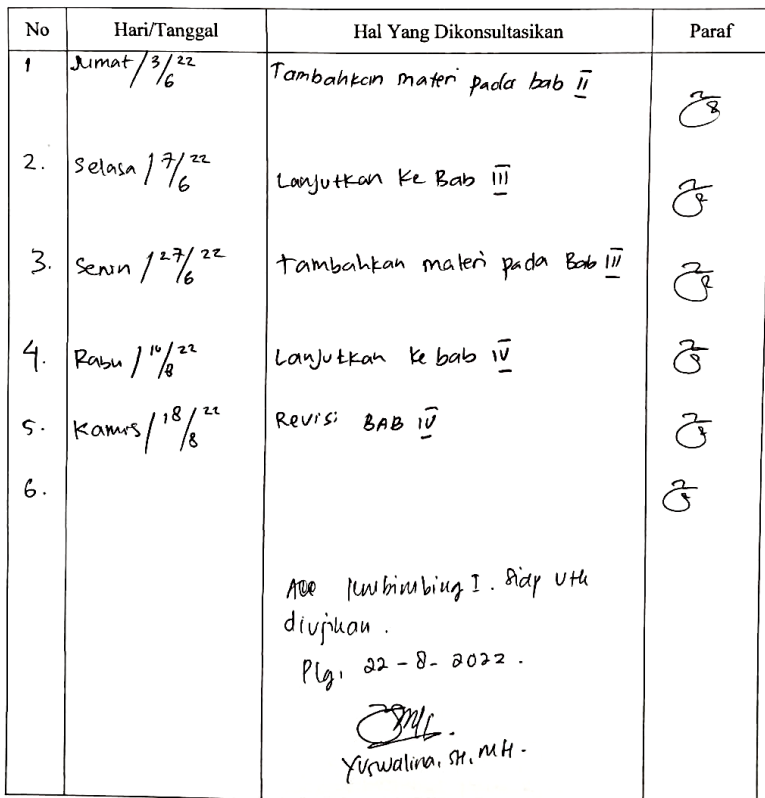 No Hari/Tanggal Hal Yang Dikonsultasikan Paraf
1 Jumat / 3/6 22 Tambahkan materi pada bab II
2. Selasa / 7/6 22 Lanjutkan Ke Bab III
3. Senin / 27/6 22 Tambahkan materi pada Bab III
4. Rabu / 10/8 22 Lanjutkan ke bab IV
5. Kamis / 18/8 22 Revisi BAB IV
6.
Acc Pembimbing I. Siap Utk
diujikan.
Plg, 22-8-2022.
Yuswalina, SH, MH.